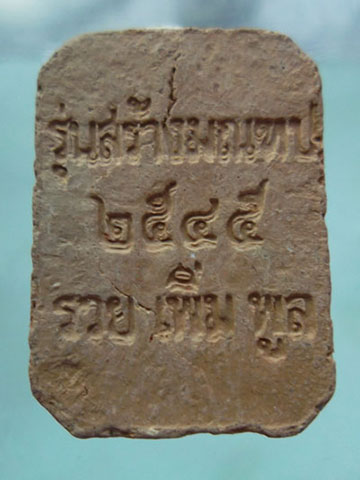 รุ่นสร้างมณฑป
๒๕๔๕
รวย เพิ่ม พูล